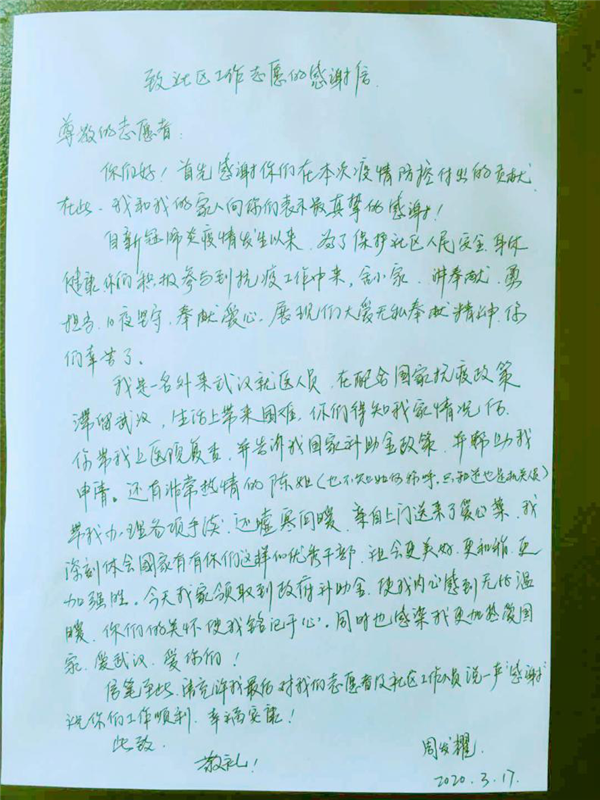 致社区工作志愿的感谢信
尊敬的志愿者:
你们好!首先感谢你们在本次疫情防控付出的贡献
在此、我和我的家人向你们表示最真挚的感谢!
自新冠肺炎疫情发生以来、为了保护社区人民安全、身体
健康你们积极参与到抗疫工作中来,舍小家、讲奉献、勇
担当、日夜坚守、奉献爱心、展现们大爱无私奉献精神、你
们辛苦了。
我是一名外来武汉就医人员、在配合国家抗疫政策
滞留武汉,生活上带来困难,你们得知我家情况后、
你带我上医院复查、并告诉我国家补助金政策、并帮助我
申请。还有非常热情的陈姐(也不知如何称呼、只知道也是机关人员)
带我办理各项手续、还嘘寒问暖、亲自上门送来了爱心菜、我
深刻体会国家有有你们这样的优秀干部、社会更美好、更和谐、更
加强胜。今天我家领取到政府补助金、使我内心感到无比温
暖、你们的关怀使我铭记于心、同时也感染我更加热爱国
家、爱武汉、爱你们!
居笔至此、请允许我最后对我们志愿者及社区工作人员说一声"感谢"
祝你们工作顺利、幸福安康!
此致
敬礼!
周发耀
2020.3.17.